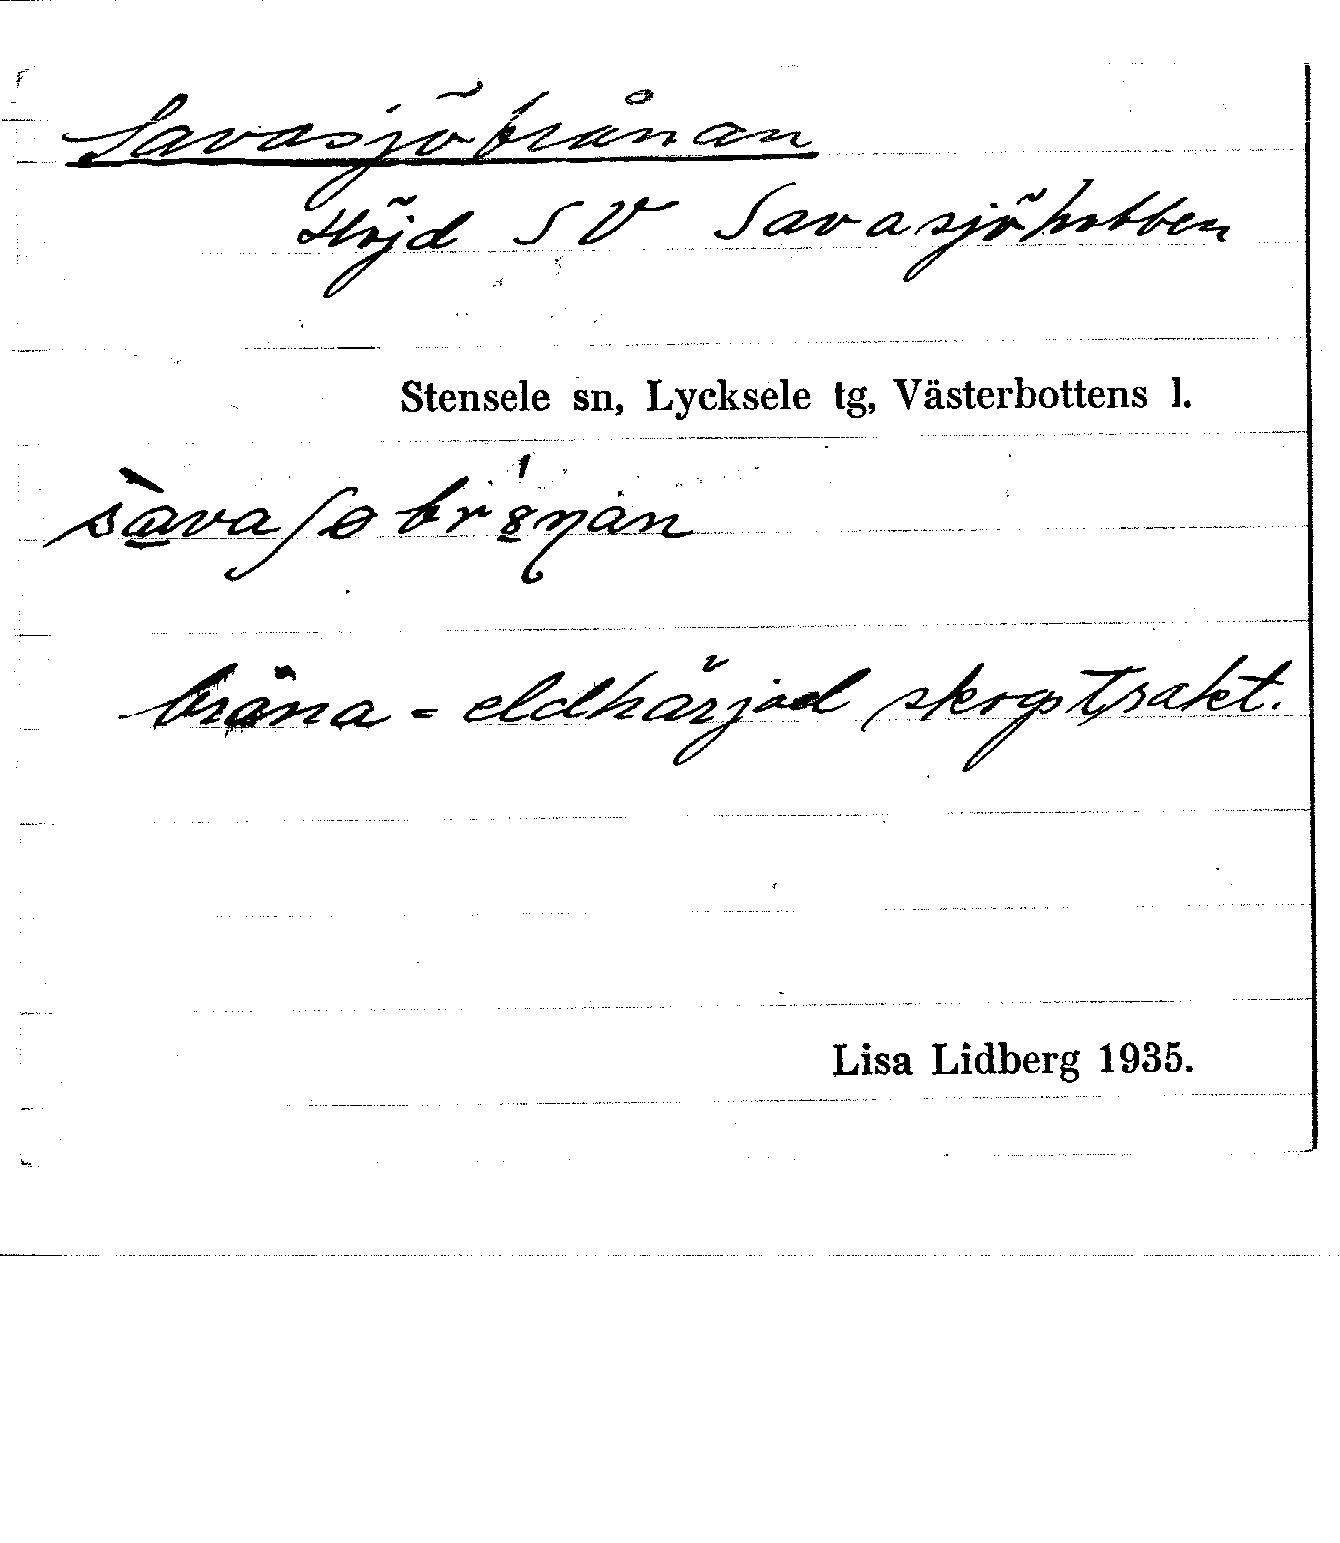 Savasjöbrånan
Höjd SV Savasjöhobben
Stensele sn, Lycksele tg, Västerbottens l.
bråna = eldhärjad skogstrakt.
Lisa Lidberg 1935.